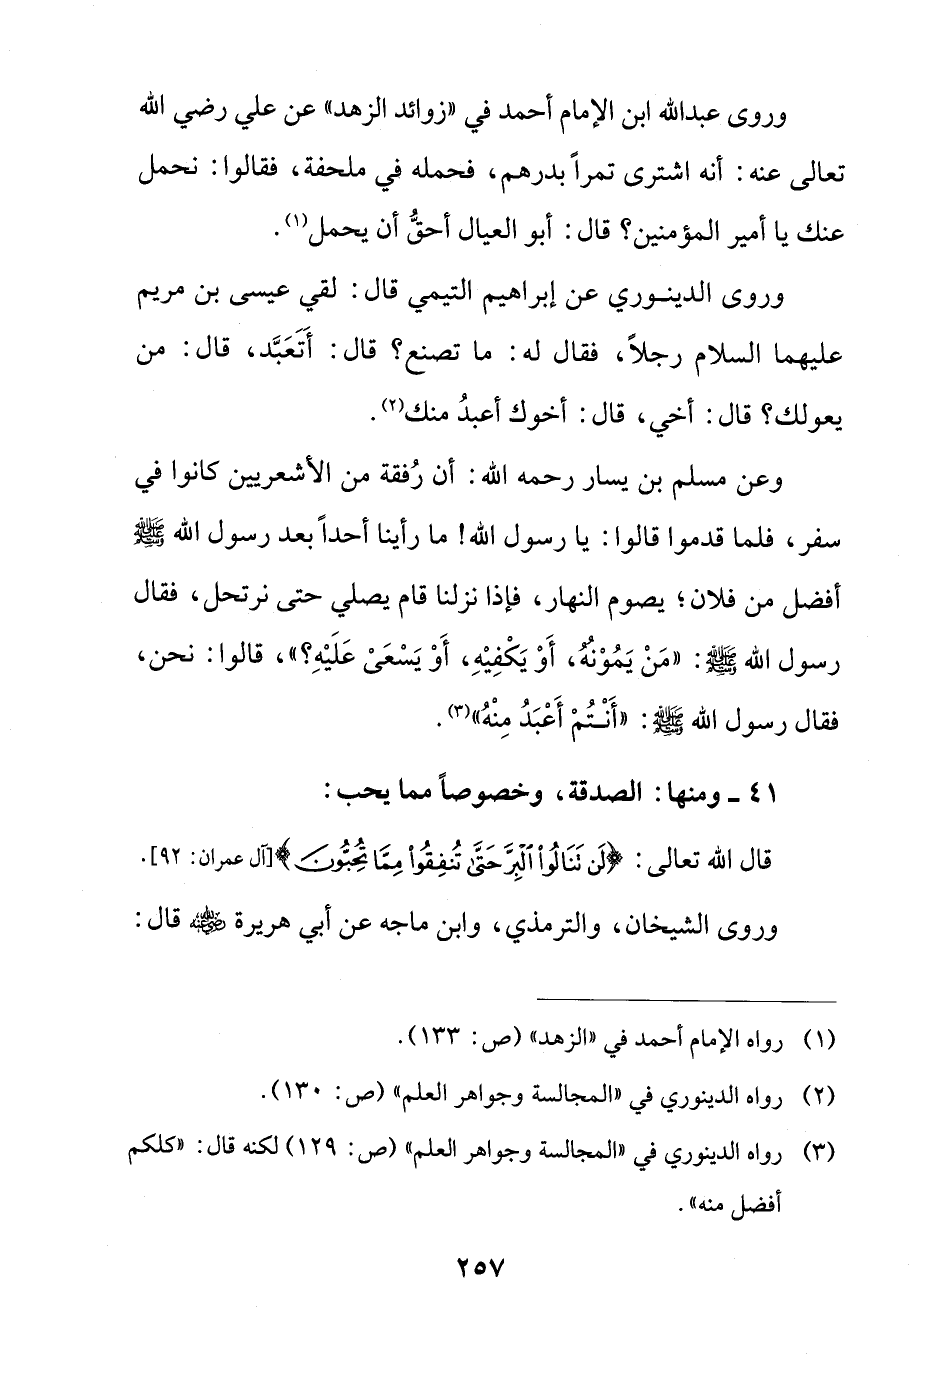 وروى عبدالله ابن الإمام أحمد في «زوائد الزهد» عن علي رضي الله
تعالى عنه: أنه اشترى تمراً بدرهم، فحمله في ملحفة، فقالوا: نحمل
عنك يا أمير المؤمنين؟ قال: أبو العيال أحقُّ أن يحمل(١).
وروى الدينوري عن إبراهيم التيمي قال: لقي عيسى بن مريم
عليهما السلام رجلاً، فقال له: ما تصنع؟ قال: أَتَعَبَّد، قال: من
يعولك؟ قال: أخي، قال: أخوك أعبدُ منك(٢).
وعن مسلم بن يسار رحمه الله: أن رُفقة من الأشعريين كانوا في
سفر، فلما قدموا قالوا: يا رسول الله! ما رأينا أحداً بعد رسول الله ﷺ
أفضل من فلان؛ يصوم النهار، فإذا نزلنا قام يصلي حتى نرتحل، فقال
رسول الله ﷺ: «مَنْ يَمُوْنُهُ، أَوْ يَكْفِيْهِ، أَوْ يَسْعَىْ عَلَيْهِ؟»، قالوا: نحن،
فقال رسول الله ﷺ: «أَنْتُمْ أَعْبَدُ مِنْهُ»(٣).
٤١ ـ ومنها: الصدقة، وخصوصاً مما يحب:
قال الله تعالى: ﴿لَن تَنَالُوا۟ ٱلْبِرَّ حَتَّىٰ تُنفِقُوا۟ مِمَّا تُحِبُّونَ﴾[آل عمران: ٩٢].
وروى الشيخان، والترمذي، وابن ماجه عن أبي هريرة رضي الله عنه قال:
(١) رواه الإمام أحمد في «الزهد» (ص: ١٣٣).
(٢) رواه الدينوري في «المجالسة وجواهر العلم» (ص: ١٣٠).
(٣) رواه الدينوري في «المجالسة وجواهر العلم» (ص: ١٢٩) لكنه قال: «كلكم
أفضل منه».
٢٥٧